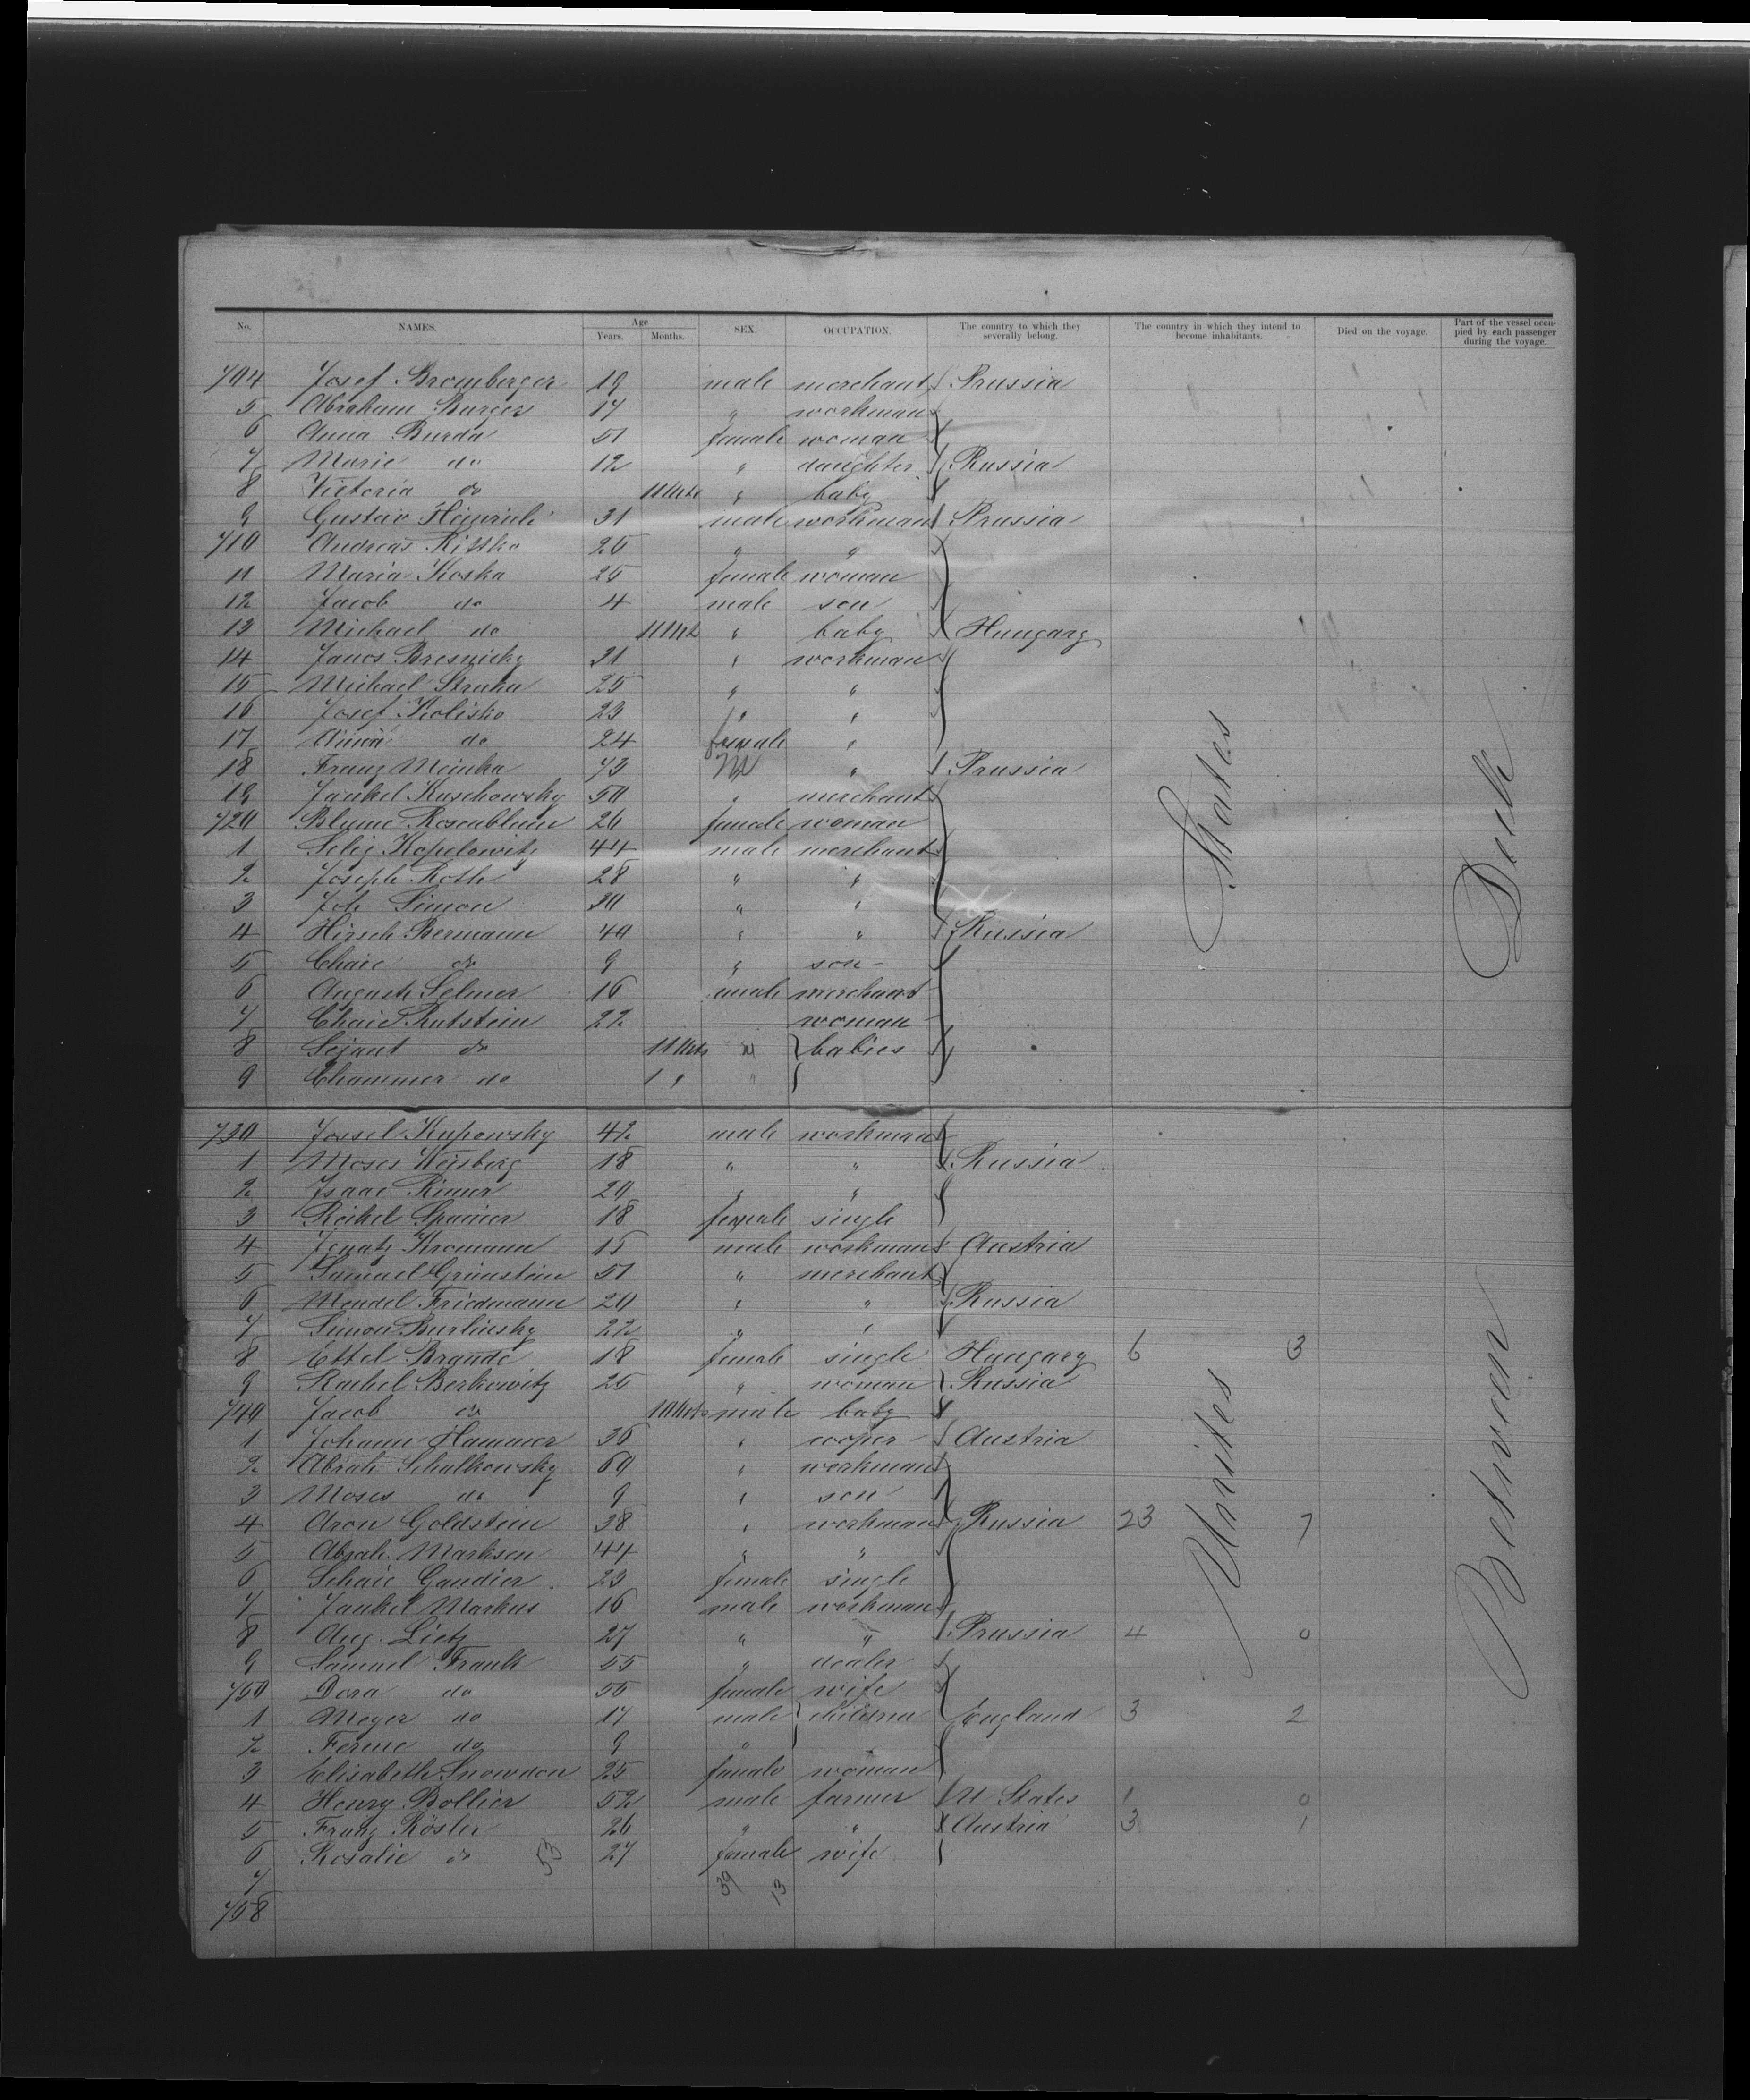 No. NAMES. Age Years. Months. SEX. OCCUPATION. The country to which they severally belong. The country in which they intend to become inhabitants. Died on the voyage. Part of the vessel occupied by each passenger during the voyage.
704 Josef Bromberger 19 male merchant Prussia
5 Abraham Burger 17 " workman
6 Anna Burda 51 female woman
7 Marie do 12 " daughter Russia
8 Victoria do 11 Mts " baby
9 Gustav Heinrich 31 male workman Prussia
710 Andreas 25 " "
11 Maria Koska 25 female woman
12 Jacob do 4 male son
13 Michael do 11 Mts " baby Hungary
14 Janos Bresnicky 31 " workman
15 Michael 25 " "
16 Josef Kolisko 23 " "
17 Anna do 24 female "
18 Franz 43 M " Prussia
19 Jankel Kuschowsky 50 " merchant
720 Blume Rosenblum 26 female woman
1 Selig Kopelowitz 44 male merchant
2 Joseph Roth 28 " "
3 Joh Simon 30 " "
4 Hirsch Bermann 40 " " Russia
5 Chaie do 9 " son
6 August Selmer 16 male merchant
7 Chaie Rutstein 22 woman
8 do 11 Mts " babies
9 do 1 " "
730 Jossel Kupowsky 42 male workman
1 Moses Weisberg 18 " " Russia
2 Isaac 20 " "
3 18 female single
4 Ignatz Kromann 15 male workman Austria
5 Samuel Grünstein 51 " merchant
6 Mendel Friedmann 20 " " Russia
7 Simon Burlinsky 22 " "
8 Ettel Brande 18 female single Hungary 6 3
9 Rachel Berkowitz 25 " woman Russia
740 Jacob do male baby
1 Johann Hammer 36 " cooper Austria
2 Abrah Schalkowsky 60 " workman
3 Moses do 9 " son
4 Aron Goldstein 38 " workman Russia 23 7
5 Abrah. Marksen 44 " "
6 Schaie Gandier 23 female single
7 Jankel Markus 16 male workman
8 Aug. Lietz 27 " " Prussia 4 0
9 Samuel Frank 55 " dealer
750 Dora do 55 female wife
1 Meyer do 17 male children England 3 2
2 do 9 "
3 Elisabeth Snowdon 25 female woman
4 Henry Bollier 52 male farmer U States 1 0
5 Franz Rösler 26 " " Austria 3 1
6 Rosalie do 27 female wife
7
758
53
39 13
Unites States
Between Deck